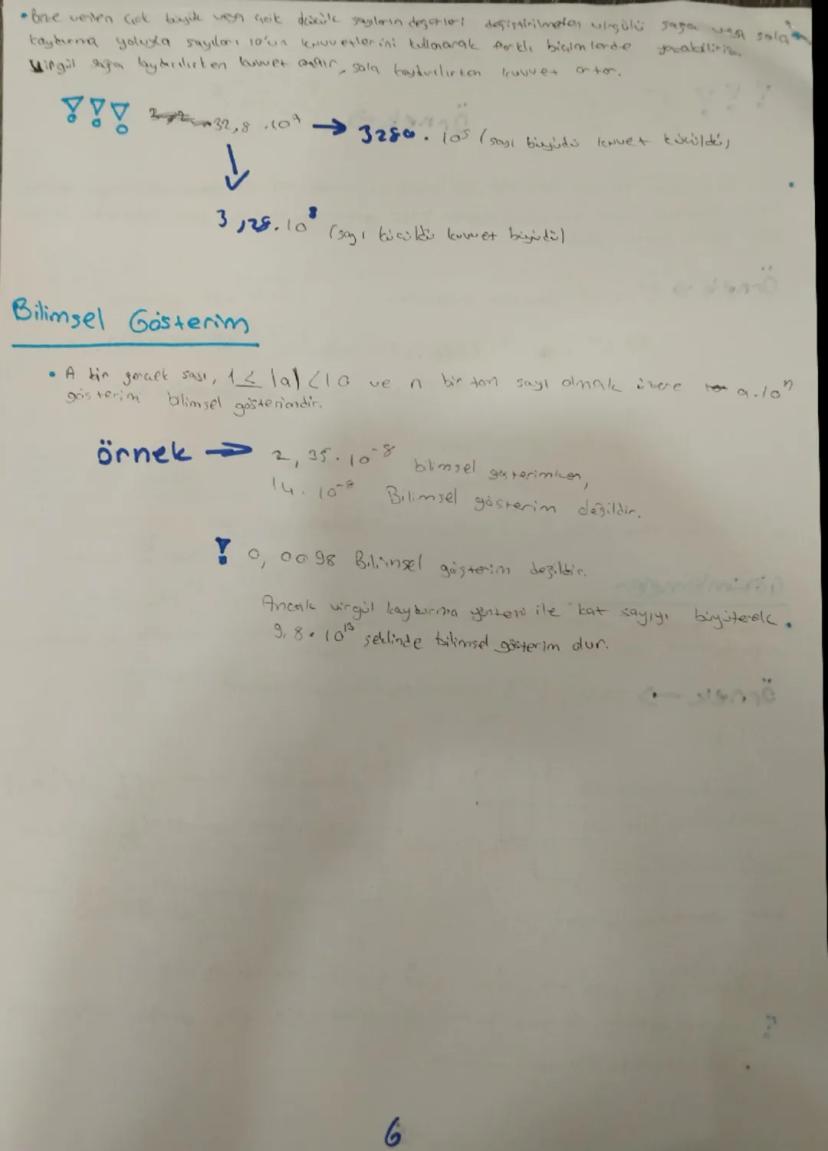 • Bize verilen çok büyük veya çok küçük sayıların değerleri değiştirilmeden virgülü sağa veya sola
kaydırma yoluyla sayıları 10'un kuvvetlerini kullanarak farklı biçimlerde yazabiliriz.
Virgül sağa kaydırılırken kuvvet azalır, sola kaydırılırken kuvvet artar.
32,8 . 10⁷ → 3280 . 10⁵ (sayı büyüdü kuvvet küçüldü)
3,28 . 10⁸ (sayı küçüldü kuvvet büyüdü)
Bilimsel Gösterim
• A bir gerçek sası, 1 ≤ |a| < 10 ve n bir tam sayı olmak üzere a.10ⁿ
gösterim bilimsel gösterimdir.
örnek → 2,35 . 10⁻⁸ bilimsel gösterimken,
14 . 10⁻⁸ Bilimsel gösterim değildir.
! 0,0098 Bilimsel gösterim değildir.
Ancak virgül kaydırma yöntemi ile kat sayıyı büyüterek.
9,8 . 10¹³ şeklinde bilimsel gösterim dur.
6